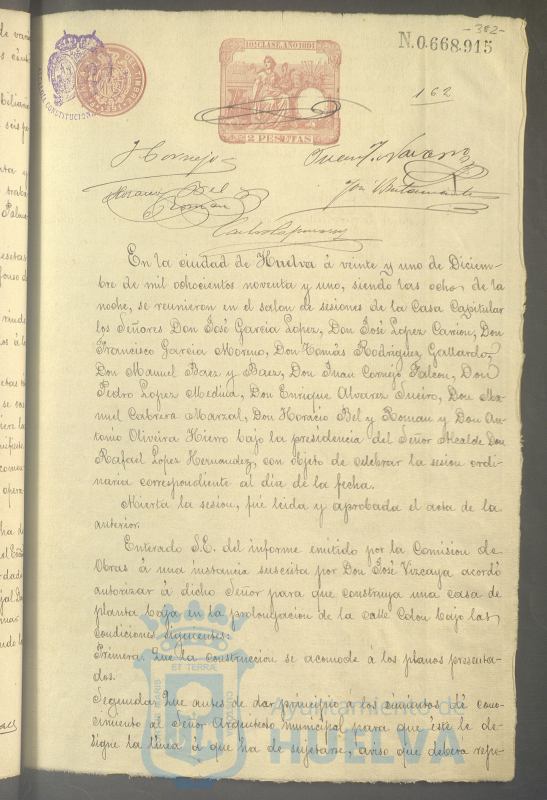 -382-
N.0.668.915
10ª CLASE. AÑO 1891
162
2 PESETAS
J Cornejo
Juan J. Navarro
Horacio Bel y
Roman
José Bustamante
En la ciudad de Huelva á veinte y uno de Diciem-
bre de mil ochocientos noventa y uno, siendo las ocho de la
noche, se reunieron en el salon de sesiones de la Casa Capitular
los Señores Don José Garcia Lopez, Don José Lopez Carion, Don
Francisco Garcia Moreno, Don Tomás Rodriguez Gallardo,
Don Manuel Baez y Baez, Don Juan Cornejo Falcon, Don
Pedro Lopez Medina, Don Enrique Alvarez Sueiro, Don Ma-
nuel Cabrera Marzal, Don Horacio Bel y Roman y Don An-
tonio Oliveira Hierro bajo la presidencia del Señor Alcalde Don
Rafael Lopez Hernandez, con objeto de celebrar la sesion ordi-
naria correspondiente al dia de la fecha.
Abierta la sesion, fué leida y aprobada el acta de la
anterior.
Enterado S.E. del informe emitido por la Comision de
Obras á una instancia suscrita por Don José Vizcaya acordó
autorizar á dicho Señor para que construya una casa de
planta baja en la prolongacion de la calle Colon bajo las
condiciones siguientes:
Primera. Que la construccion se acomode á los planos presenta-
dos.
Segunda. Que antes de dar principio a los cimientos dé cono-
cimiento al Señor Arquitecto municipal para que éste le de-
signe la línea á que ha de sujetarse, aviso que deberá repe-
Ayuntamiento de
HUELVA